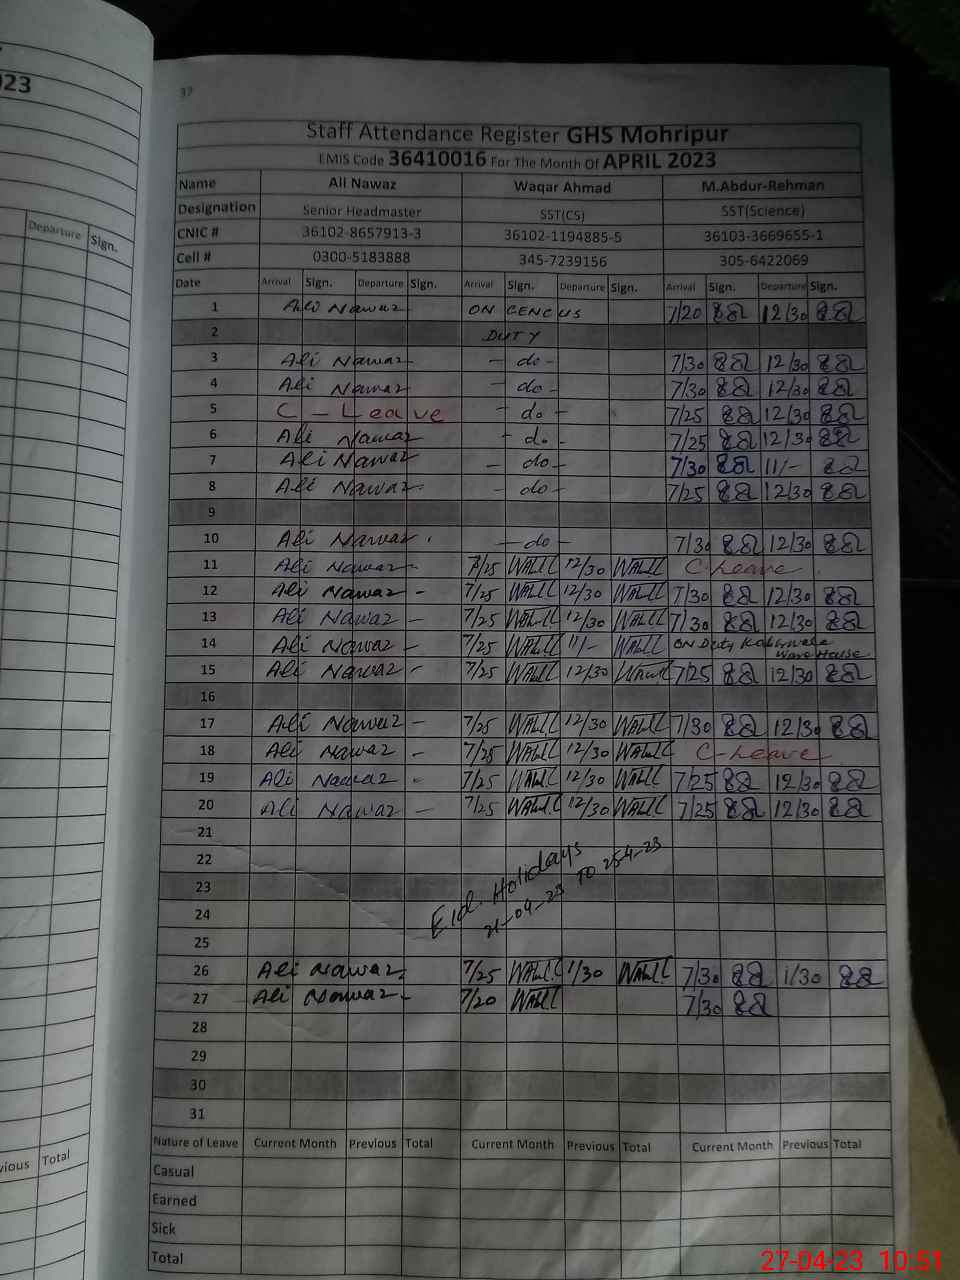 023
Departure Sign.
vious Total
37
Staff Attendance Register GHS Mohripur
EMIS Code 36410016 For The Month Of APRIL 2023
Name Ali Nawaz Waqar Ahmad M.Abdur-Rehman
Designation Senior Headmaster SST(CS) SST(Science)
CNIC # 36102-8657913-3 36102-1194885-5 36103-3669655-1
Cell # 0300-5183888 345-7239156 305-6422069
Date Arrival Sign. Departure Sign. Arrival Sign. Departure Sign. Arrival Sign. Departure Sign.
1 Ali Nawaz ON CENCUS 7/20 12/30
2 DUTY
3 Ali Nawaz - do - 7/30 12/30
4 Ali Nawaz - do - 7/30 12/30
5 C - Leave - do - 7/25 12/30
6 Ali Nawaz - do - 7/25 12/30
7 Ali Nawaz - do - 7/30 11/-
8 Ali Nawaz - do - 7/25 12/30
9
10 Ali Nawaz - do - 7/30 12/30
11 Ali Nawaz 7/25 12/30 C-Leave
12 Ali Nawaz - 7/25 12/30 7/30 12/30
13 Ali Nawaz - 7/25 12/30 7/30 12/30
14 Ali Nawaz - 7/25 11/- ON Duty
Ware House
15 Ali Nawaz - 7/25 12/30 7/25 12/30
16
17 Ali Nawaz - 7/25 12/30 7/30 12/30
18 Ali Nawaz - 7/25 12/30 C-Leave
19 Ali Nawaz - 7/25 12/30 7/25 12/30
20 Ali Nawaz - 7/25 12/30 7/25 12/30
21
22
Eid. Holidays
21-04-23 TO 254-23
23
24
25
26 Ali Nawaz 7/25 1/30 7/30 1/30
27 Ali Nawaz - 7/20 7/30
28
29
30
31
Nature of Leave Current Month Previous Total Current Month Previous Total Current Month Previous Total
Casual
Earned
Sick
Total
27-04-23 10:51